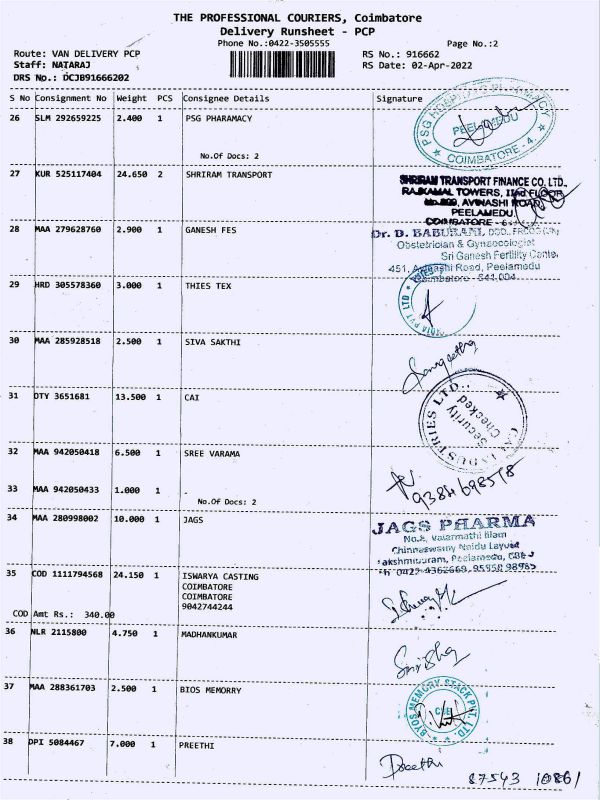 THE PROFESSIONAL COURIERS, Coimbatore
Delivery Runsheet - PCP
Phone No.:0422-3505555
Page No.:2
Route: VAN DELIVERY PCP
RS No.: 916662
Staff: NATARAJ
RS Date: 02-Apr-2022
DRS No.: DCJB91666202
S No Consignment No Weight PCS Consignee Details Signature
26 SLM 292659225 2.400 1 PSG PHARAMACY
No.Of Docs: 2
PEELAMEDU
COIMBATORE - 4.
27 KUR 525117404 24.650 2 SHRIRAM TRANSPORT
SHRIRAM TRANSPORT FINANCE CO. LTD.,
RAJKAMAL TOWERS, IInd FLOOR
AVINASHI ROAD,
PEELAMEDU,
COIMBATORE -
28 MAA 279628760 2.900 1 GANESH FES
Dr. D. BABURANI,
Obstetrician & Gynaecologist
Sri Ganesh Fertility Centre
451, Avinashi Road, Peelamedu
Coimbatore - 641 004.
29 HRD 305578360 3.000 1 THIES TEX
30 MAA 285928518 2.500 1 SIVA SAKTHI
31 DTY 3651681 13.500 1 CAI
INDUSTRIES LTD.,
Security
Checked
32 MAA 942050418 6.500 1 SREE VARAMA
33 MAA 942050433 1.000 1 -
No.Of Docs: 2
9384698578
34 MAA 280998002 10.000 1 JAGS
JAGS PHARMA
Chinnaswamy Naidu Layout
Peelamedu,
35 COD 1111794568 24.150 1 ISWARYA CASTING
COIMBATORE
COIMBATORE
9042744244
COD Amt Rs.: 340.00
36 NLR 2115800 4.750 1 MADHANKUMAR
37 MAA 288361703 2.500 1 BIOS MEMORRY
BYOS MEMORY STACK PVT. LTD.
CBE
38 DPI 5084467 7.000 1 PREETHI
Preethi
87543 10861